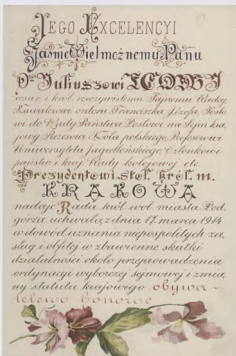 JEGO EXCELENCYI
Jaśnie Wielmożnemu Panu
Dr Juliuszowi LEOWI
cesar. i król. rzeczywistemu Tajnemu Radcy,
Kawalerowi orderu Franciszka Józefa, Posło-
wi do Rady Państwa, Posłowi na Sejm kra-
jowy, Prezesowi Koła polskiego, Profesorowi
Uniwersytetu Jagiellońskiego, Członkowi
państw. i kraj. Rady kolejowej etc.
Prezydentowi stoł. król. m.
KRAKOWA
nadaje Rada król. wol. miasta Pod-
górza uchwałą z dnia 17. marca 1914
w dowód uznania niepospolitych za-
sług i obfity w zbawienne skutki
działalności około przeprowadzenia
ordynacyi wyborczej sejmowej i zmia-
ny statutu krajowego obywa-
telstwo honorowe